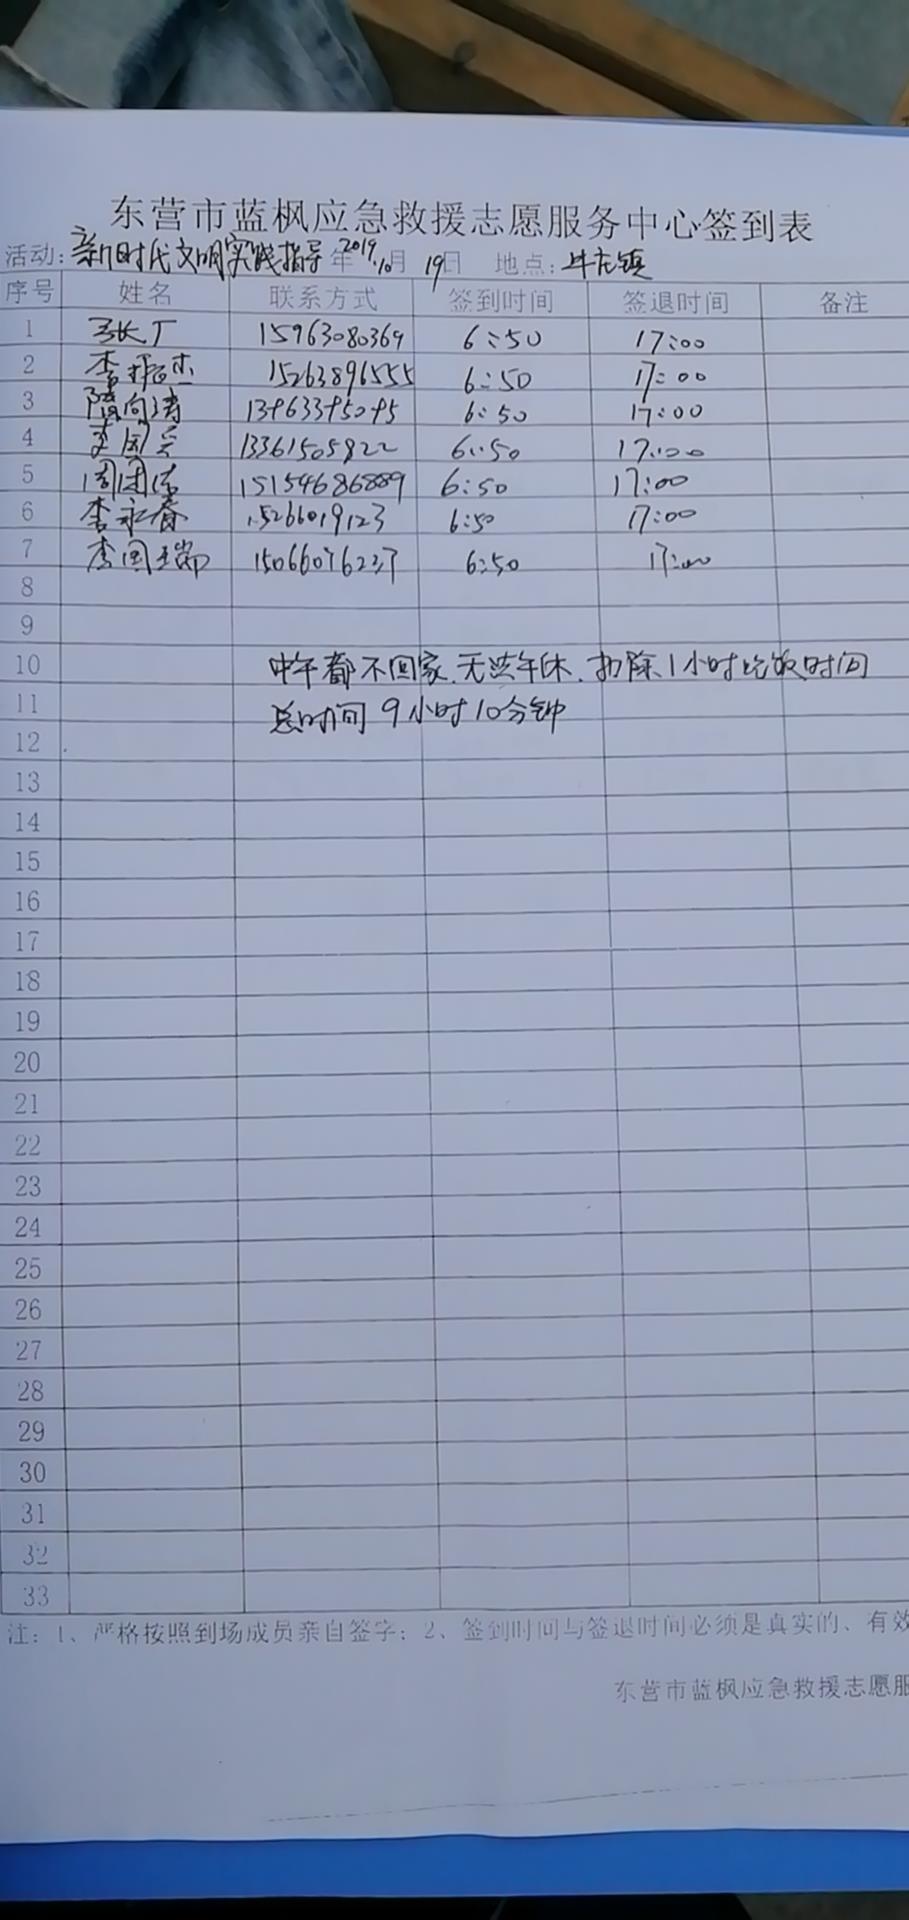 东营市蓝枫应急救援志愿服务中心签到表
活动:新时代文明实践指导 年2019.10月19日 地点:牛庄镇
序号 姓名 联系方式 签到时间 签退时间 备注
1 张广 15963080369 6:50 17:00
2 李 15263896555 6:50 17:00
3 隋向涛 6:50 17:00
4 李国兴 13361505822 6:50 17:00
5 周团结 15154686889 6:50 17:00
6 李永春 15266019123 6:50 17:00
7 李国瑞 15066076237 6:50 17:00
8
9
10 中午都不回家.无法午休.扣除1小时吃饭时间
11 总时间9小时10分钟
12
13
14
15
16
17
18
19
20
21
22
23
24
25
26
27
28
29
30
31
32
33
注: 1、严格按照到场成员亲自签字; 2、签到时间与签退时间必须是真实的、有效
东营市蓝枫应急救援志愿服